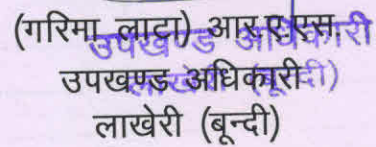 (गरिमा लाटा) आर.ए.एस.
उपखण्ड अधिकारी
उपखण्ड अधिकारी
लाखेरी (बून्दी)
लाखेरी (बून्दी)